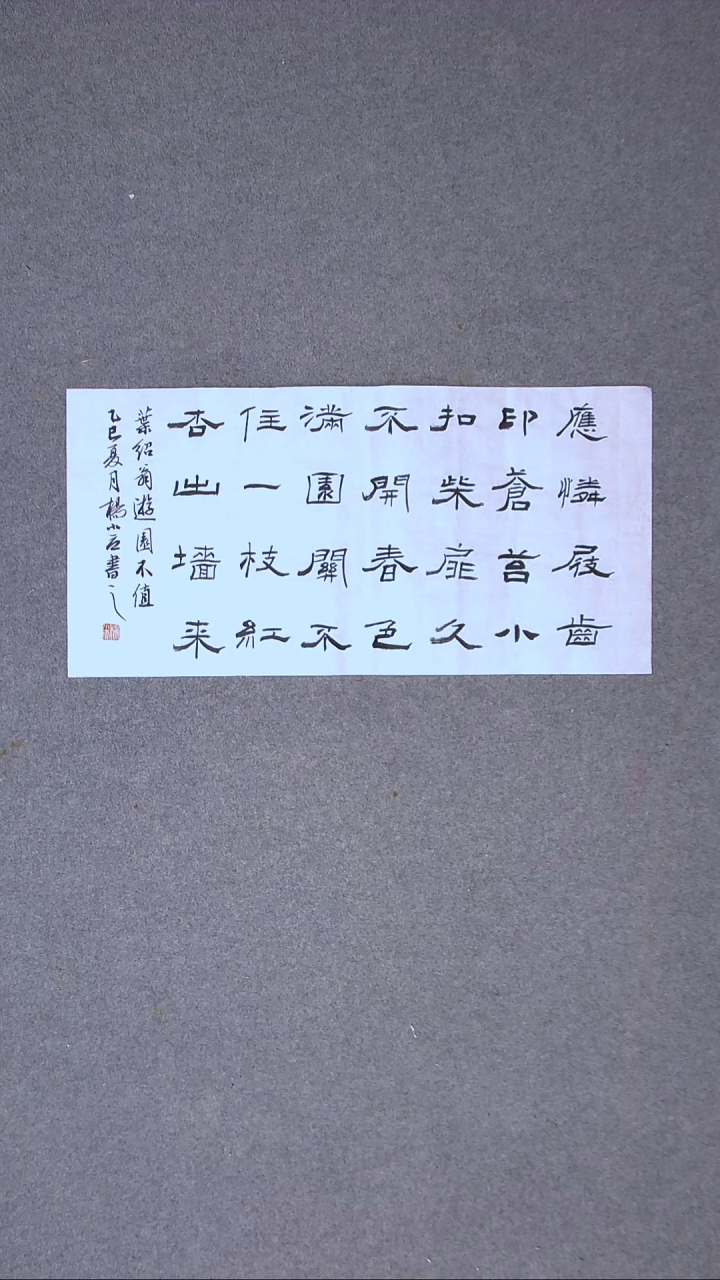 應憐屐齒
印蒼苔小
扣柴扉久
不開春色
滿園關不
住一枝紅
杏出墻来
葉紹翁遊園不值
乙巳夏月楊小書之